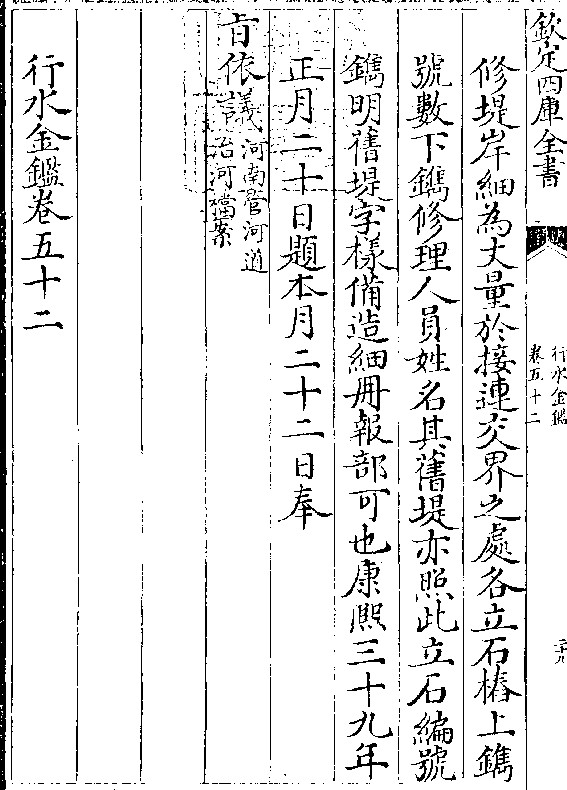 欽定四庫全書
行水金鑑
卷五十二
二十九
修堤岸細為丈量於接連交界之處各立石樁上鐫
號數下鐫修理人員姓名其舊堤亦照此立石編號
鐫明舊堤字樣備造細冊報部可也康熙三十九年
正月二十日題本月二十二日奉
旨依議河南管河道
治河檔案
行水金鑑卷五十二